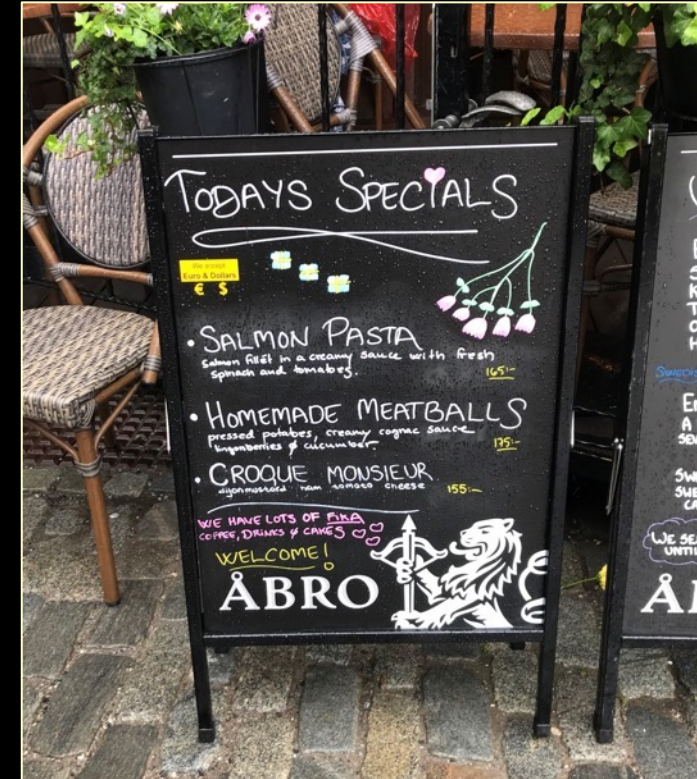 TODAYS SPECIALS
We accept
Euro & Dollars
€ $
• SALMON PASTA
Salmon fillét in a creamy sauce with fresh
spinach and tomatoes.
165:-
• HOMEMADE MEATBALLS
pressed potatoes, creamy cognac sauce
lingonberries & cucumber.
175:-
• CROQUE MONSIEUR
dijonmustard ham tomato cheese
155:-
WE HAVE LOTS OF FIKA
COFFEE, DRINKS & CAKES
WELCOME!
ÅBRO
WE SE
UNTIL